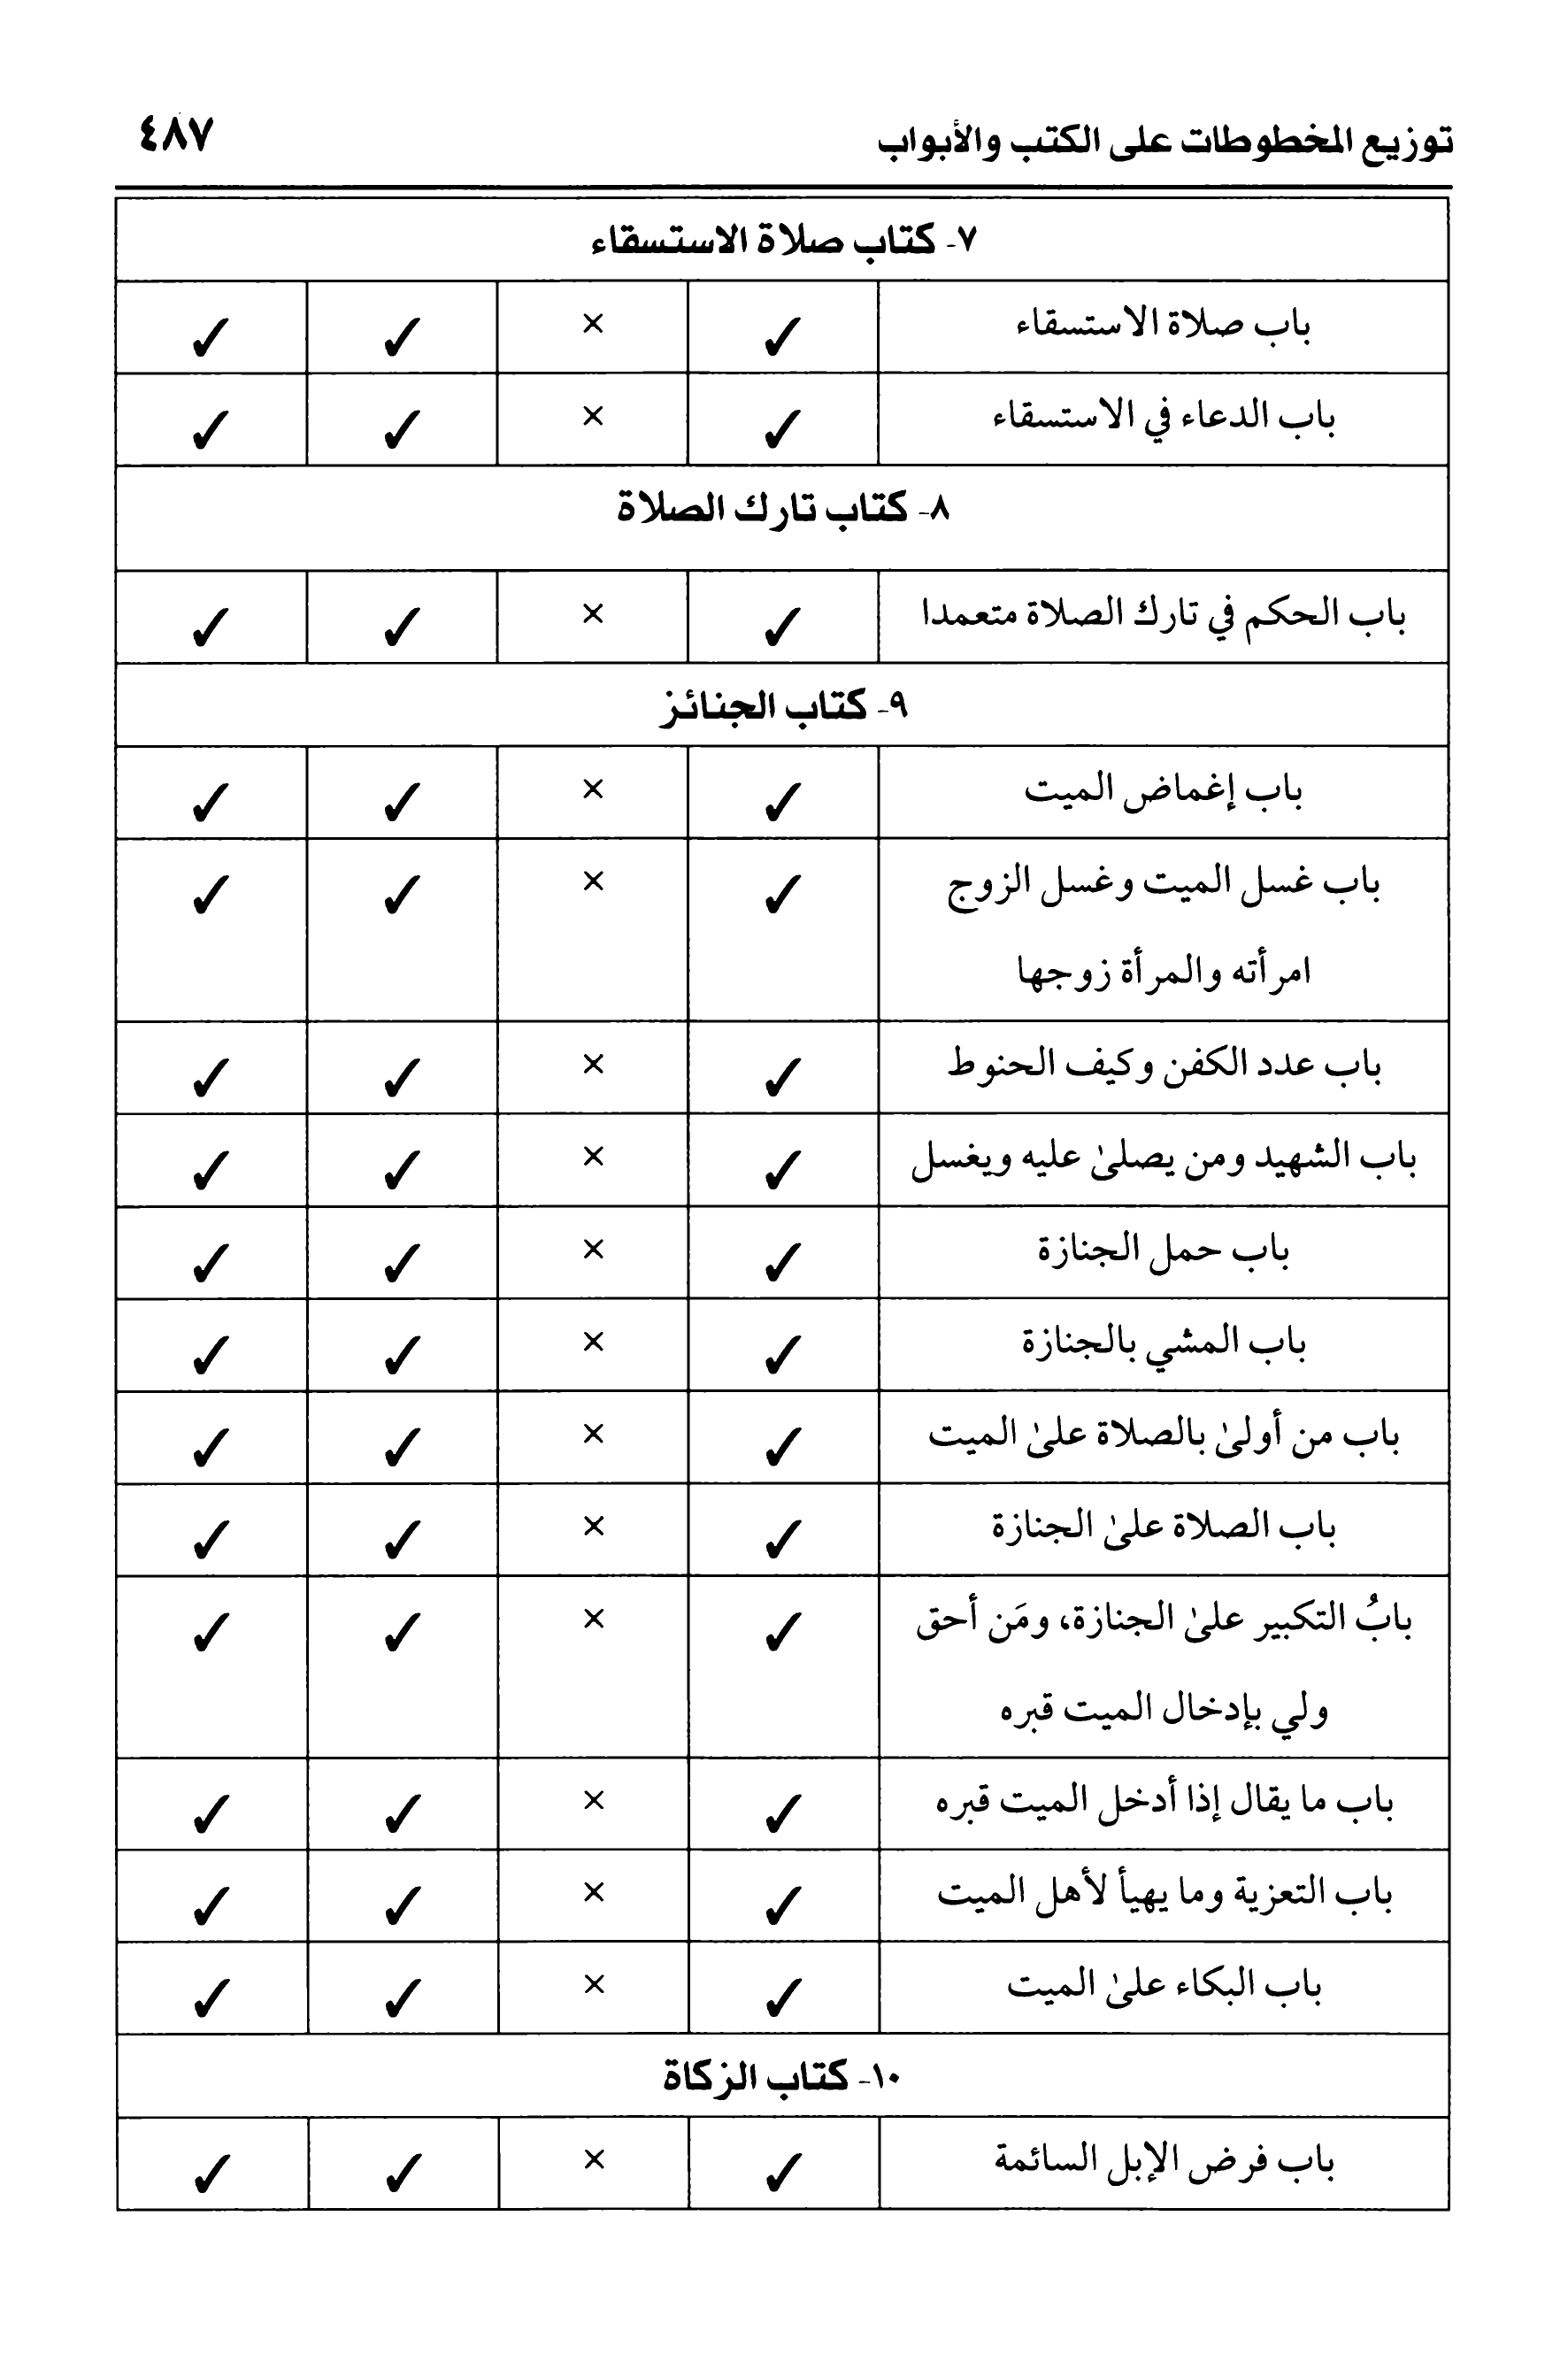 توزيع المخطوطات على الكتب والأبواب ٤٨٧
٧- كتاب صلاة الاستسقاء
باب صلاة الاستسقاء ✓ × ✓ ✓
باب الدعاء في الاستسقاء ✓ × ✓ ✓
٨- كتاب تارك الصلاة
باب الحكم في تارك الصلاة متعمدا ✓ × ✓ ✓
٩- كتاب الجنائز
باب إغماض الميت ✓ × ✓ ✓
باب غسل الميت وغسل الزوج ✓ × ✓ ✓
امرأته والمرأة زوجها
باب عدد الكفن وكيف الحنوط ✓ × ✓ ✓
باب الشهيد ومن يصلىٰ عليه ويغسل ✓ × ✓ ✓
باب حمل الجنازة ✓ × ✓ ✓
باب المشي بالجنازة ✓ × ✓ ✓
باب من أولىٰ بالصلاة علىٰ الميت ✓ × ✓ ✓
باب الصلاة علىٰ الجنازة ✓ × ✓ ✓
بابُ التكبير علىٰ الجنازة، ومَن أحق ✓ × ✓ ✓
ولي بإدخال الميت قبره
باب ما يقال إذا أدخل الميت قبره ✓ × ✓ ✓
باب التعزية وما يهيأ لأهل الميت ✓ × ✓ ✓
باب البكاء علىٰ الميت ✓ × ✓ ✓
١٠- كتاب الزكاة
باب فرض الإبل السائمة ✓ × ✓ ✓